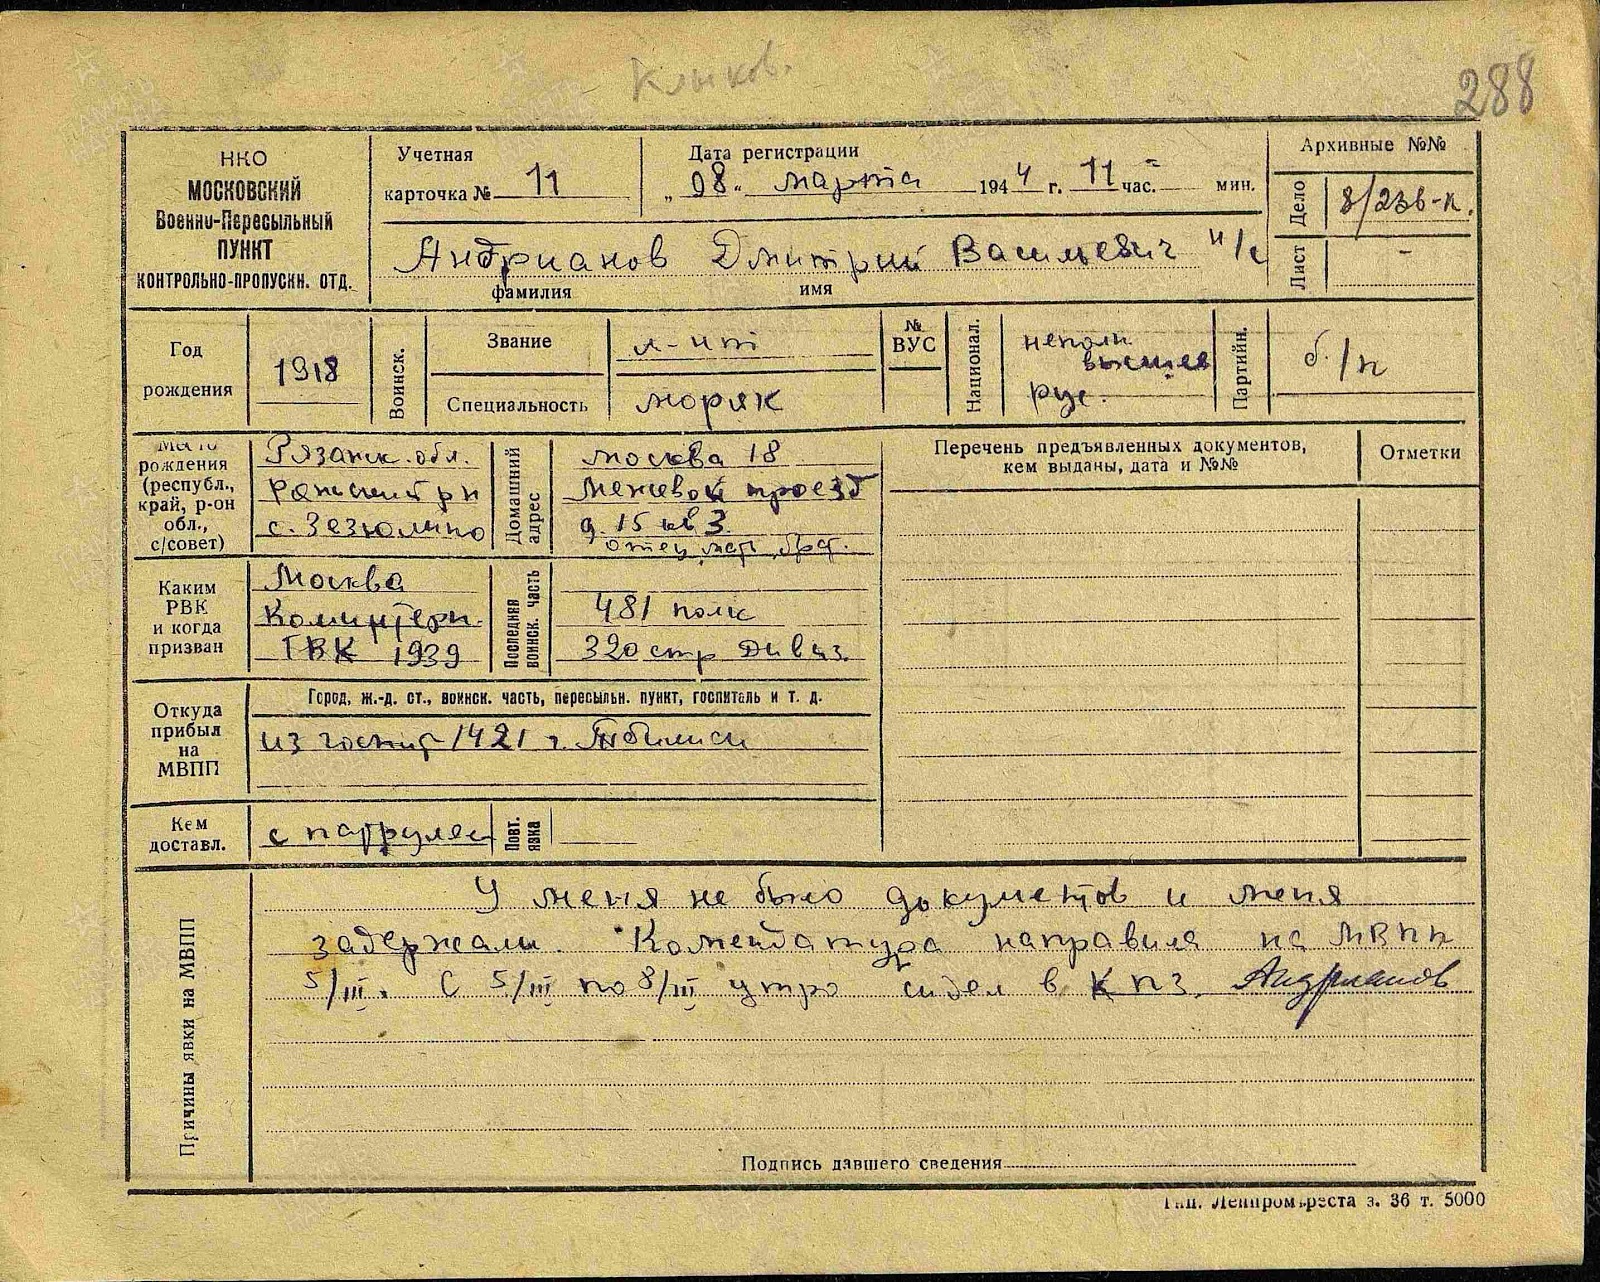 Клыков.
288
НКО
МОСКОВСКИЙ
Военно-Пересыльный
ПУНКТ
КОНТРОЛЬНО-ПРОПУСКН. ОТД.
Учетная
карточка № 11
Дата регистрации
„08" марта 1944 г. 11 час. = мин.
Архивные №№
Дело 8/236-п.
Лист -
Андрианов Дмитрий Васильевич
фамилия имя
Год
рождения
1918
Воинск.
Звание л-нт
Специальность моряк
№
ВУС
Национал.
неполн.
высшее
рус.
Партийн.
б./п
Место
рождения
(республ.,
край, р-он
обл.,
с/совет)
Рязанск. обл.
р-н
с. Зезюлино
Домашний
адрес
Москва 18
Межевой проезд
д. 15 кв 3.
отец, мать, брат.
Перечень предъявленных документов,
кем выданы, дата и №№
Отметки
Каким
РВК
и когда
призван
Москва
Коминтерн.
ГВК 1939
Последняя
воинск. часть
481 полк
320 стр дивиз.
Откуда
прибыл
на
МВПП
Город, ж.-д. ст., воинск. часть, пересыльн. пункт, госпиталь и т. д.
из госпит 1421 г. Тбилиси
Кем
доставл.
с патрулем
Повт.
явка
Причины явки на МВПП
У меня не было документов и меня
задержали. Комендатура направила на МВПП
5/III. С 5/III по 8/III утро сидел в КПЗ. Андрианов
Подпись давшего сведения
Тип. Ленпромтреста з. 36 т. 5000